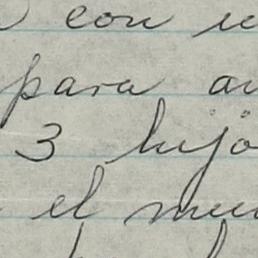 con
para
3 hijo
el mun